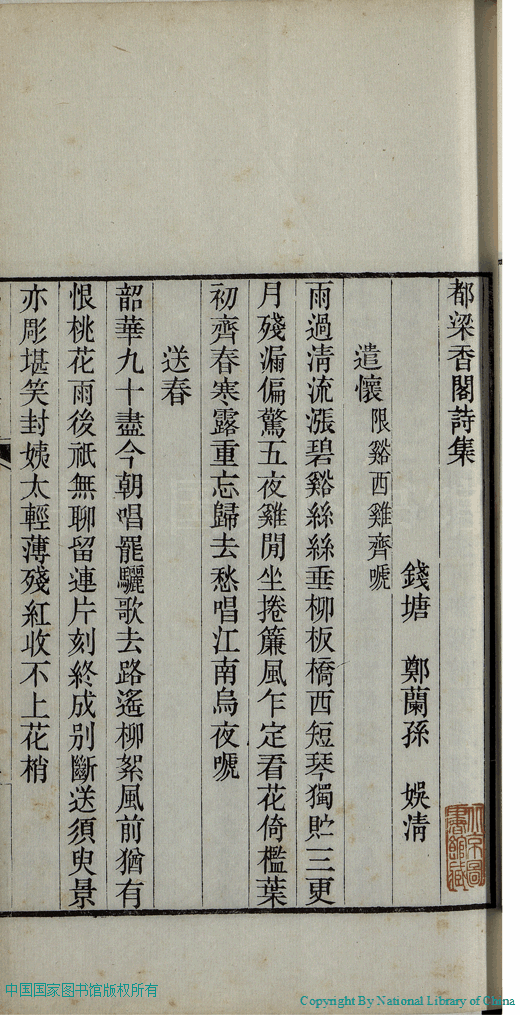 都梁香閣詩集
錢塘　鄭蘭孫　娛淸
遣懷 限谿西雞齊嗁
雨過淸流漲碧谿絲絲垂柳板橋西短琴獨貯三更
月殘漏偏驚五夜雞閒坐捲簾風乍定看花倚檻葉
初齊春寒露重忘歸去愁唱江南烏夜嗁
送春
韶華九十盡今朝唱罷驪歌去路遙柳絮風前猶有
恨桃花雨後祇無聊留連片刻終成别斷送須臾景
亦彫堪笑封姨太輕薄殘紅收不上花梢
北京圖書館藏
中国国家图书馆版权所有
Copyright By National Library of China